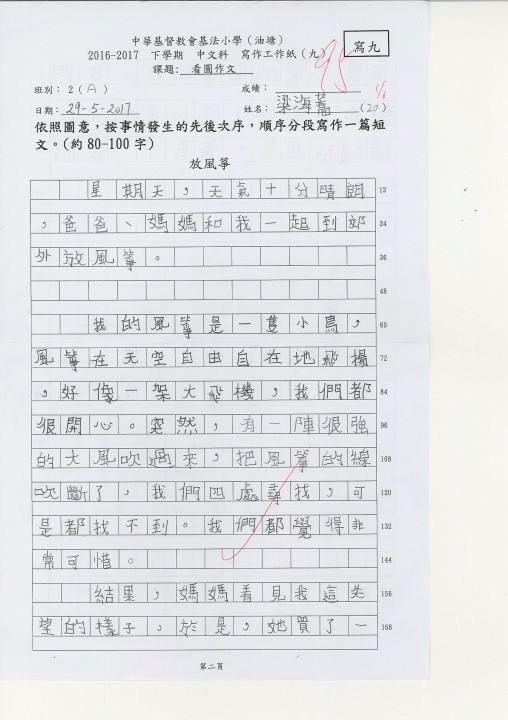 中華基督教會基法小學（油塘）
2016-2017 下學期 中文科 寫作工作紙（九）
寫九
課題: 看圖作文
95
班別：2（A）
成績：
1/6
日期：29-5-2017
姓名：梁海蕎（20）
依照圖意，按事情發生的先後次序，順序分段寫作一篇短
文。（約80-100字）
放風箏
星期天，天氣十分晴朗 12
，爸爸、媽媽和我一起到郊 24
外放風箏。 36
48
我的風箏是一隻小鳥， 60
風箏在天空自由自在地飛揚 72
，好像一架大飛機，我們都 84
很開心。突然，有一陣很強 96
的大風吹過來，把風箏的線 108
吹斷了，我們四處尋找，可 120
是都找不到。我們都覺得非 132
常可惜。 144
結果，媽媽看見我這失 156
望的樣子，於是，她買了一 168
第二頁